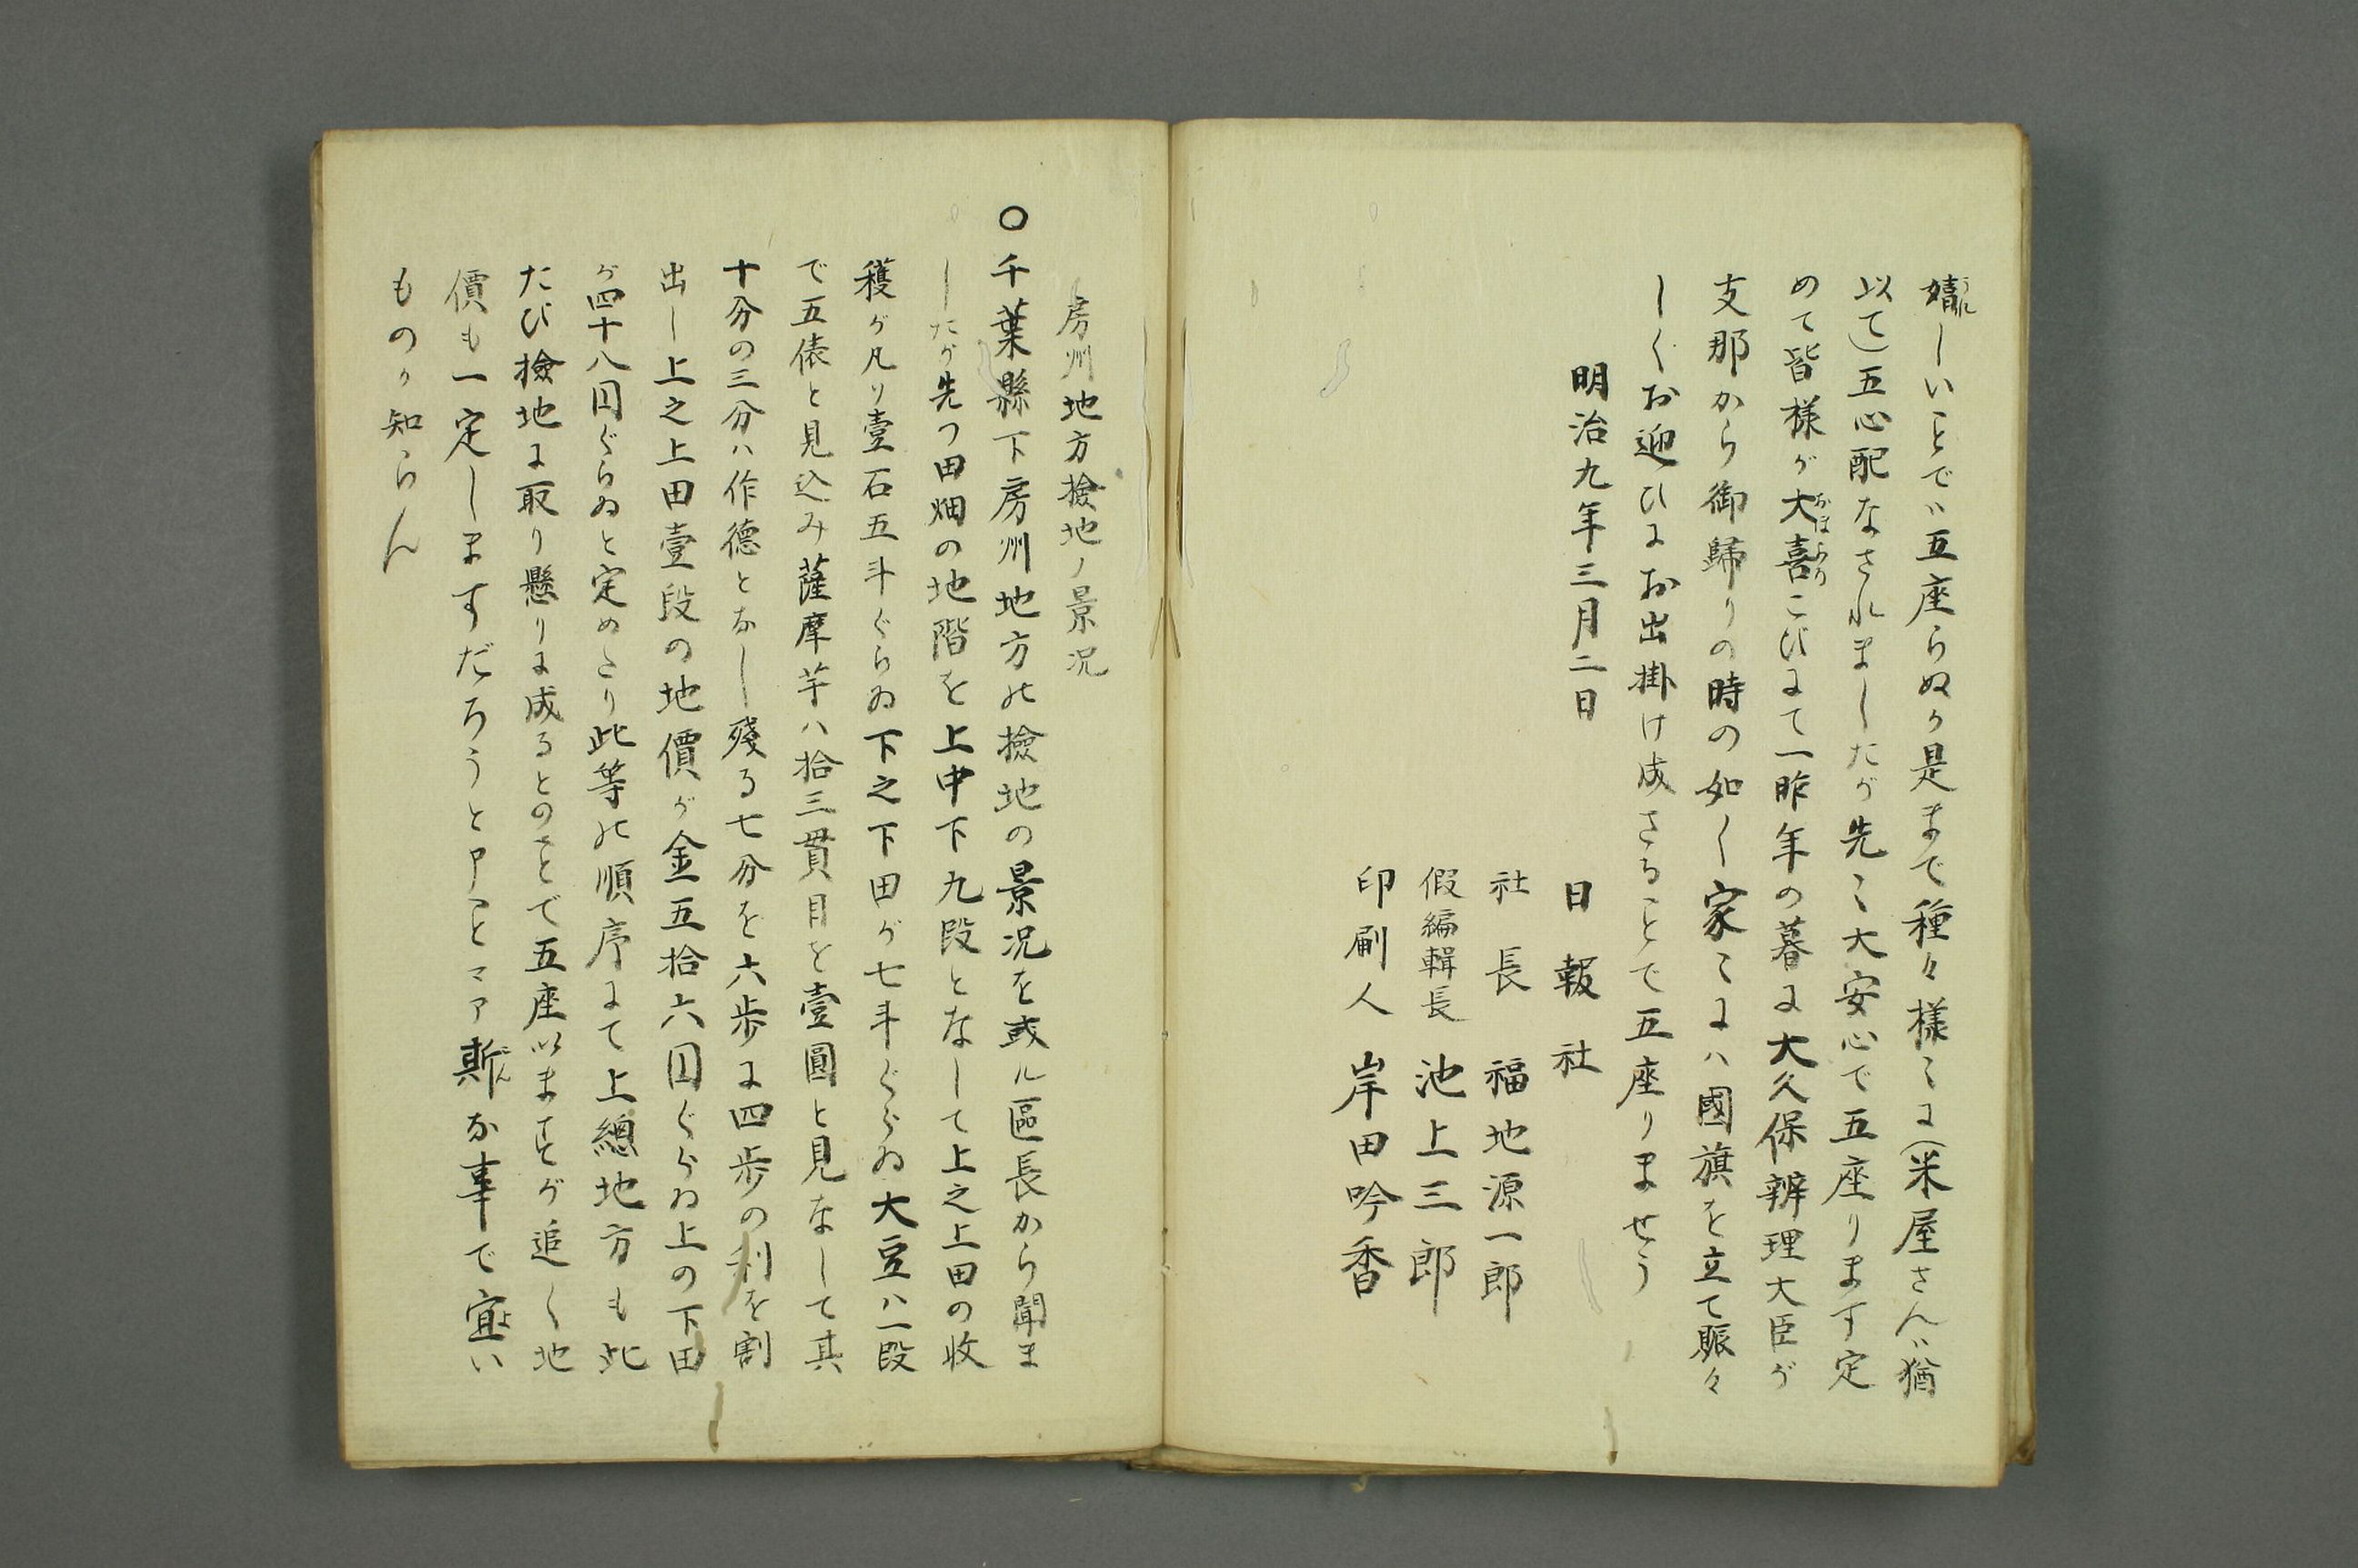 嬉しいことで五座らぬか是まで種々様々に(米屋さんハ猶
以て)五心配なされましたが先々大安心で五座ります定
めて皆様が大喜こびにて一昨年の暮に大久保辨理大臣が
支那から御歸りの時の如く家々にハ國旗を立て賑々
しくお迎ひにお出掛け成さることで五座りませう
明治九年三月二日
日報社
社長 福地源一郎
假編輯長 池上三郎
印刷人 岸田吟香
房州地方撿地ノ景況
○千葉縣下房州地方の撿地の景況を或ル區長から聞ま
したが先つ田畑の地階を上中下九段となして上之上田の收
穫が凡り壹石五斗ぐらゐ下之下田が七斗ぐらゐ大豆ハ一段
で五俵と見込み薩摩芋ハ拾三貫目を壹圓と見なして其
十分の三分ハ作德となし殘る七分を六歩に四歩の利を割
出し上之上田壹段の地價が金五拾六円ぐらゐ上の下田
が四十八円ぐらゐと定めたり此等の順序にて上總地方も此
たび撿地に取り懸りに成るとのことで五座いますが追く地
價も一定しますだろうと申ことマア斯な事で宜い
ものか知らん